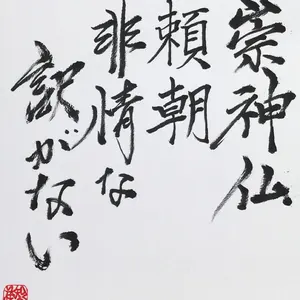 崇神仏
頼朝
非情な
訳がない